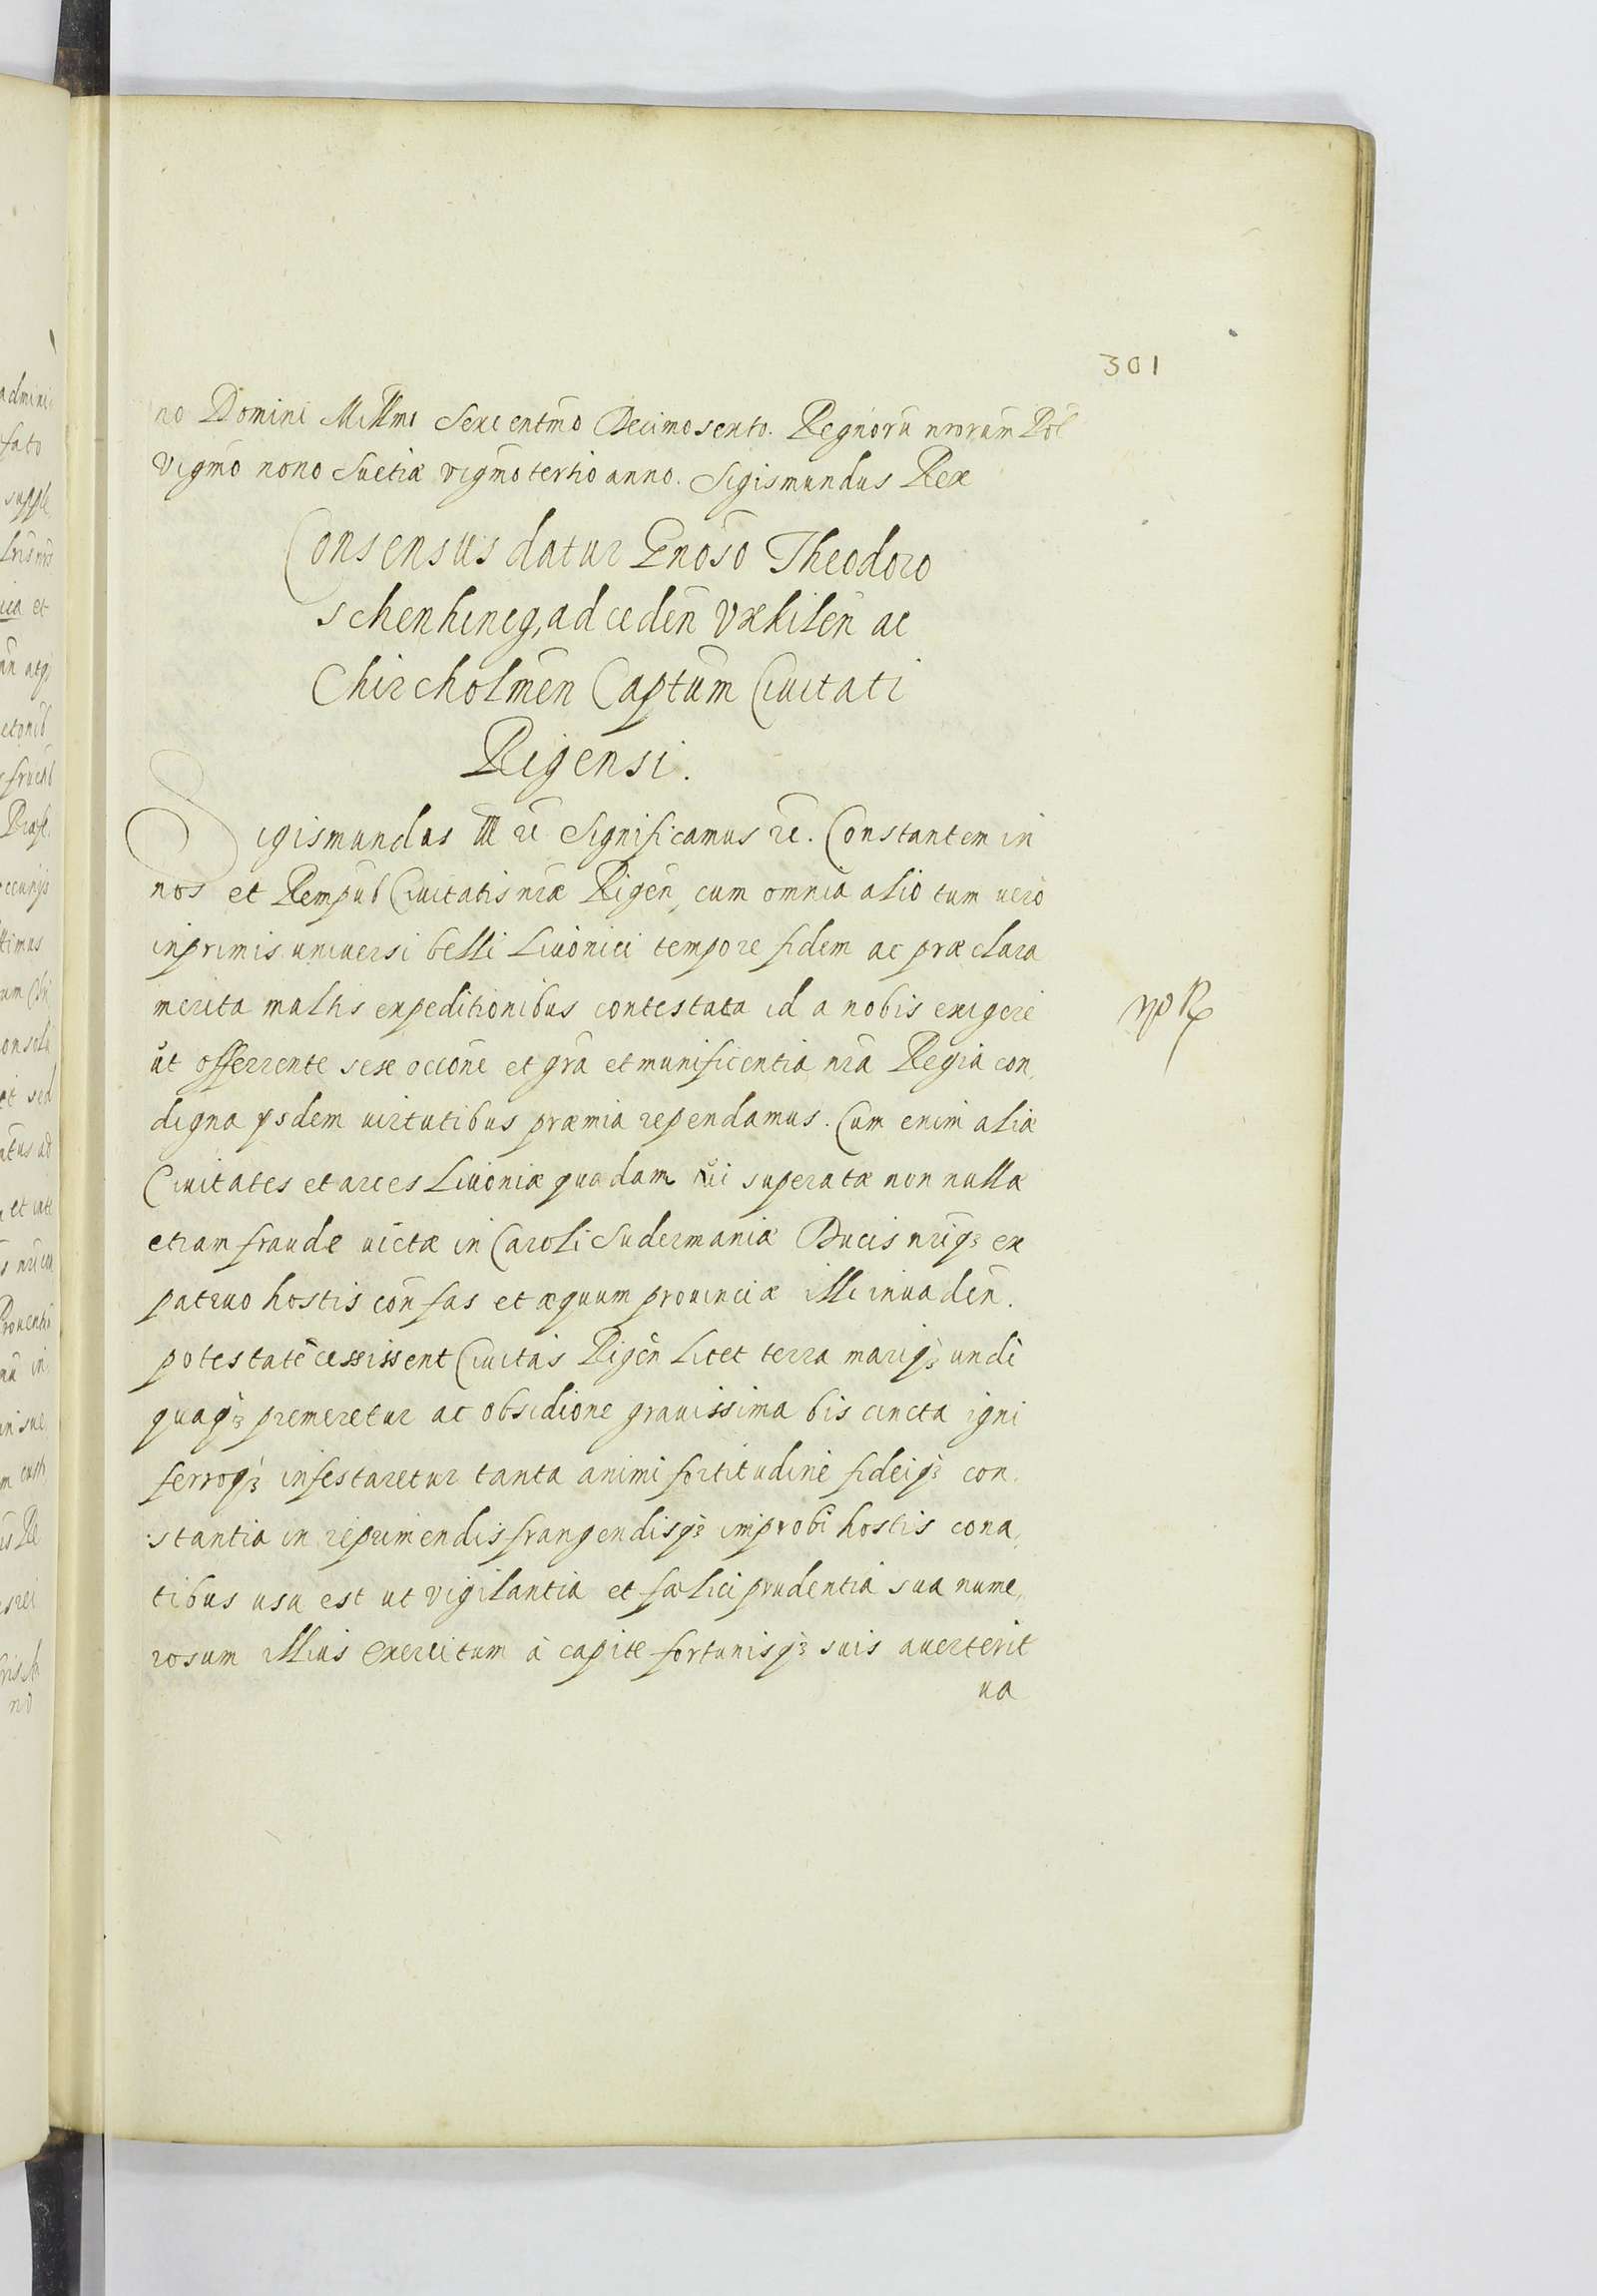 301
no Domini Millmo Sexcentmo Decimosexto. Regnorū nrorum Pol
vigmo nono Suetiæ vigmo tertio anno. Sigismundus Rex
Consensus datur Gnoso Theodoro
schenking, ad cedēn Vxkilēn ac
Chircholmēn Captum Ciuitati
Rigensi.
Sigismundus III rc Significamus rc. Constantem in
nos et Rempub Ciuitatis nræ Rigēn, cum omnia alio tum uero
inprimis uniuersi belli Liuonici tempore fidem ac præclara
merita multis expeditionibus contestata id a nobis exigere
ut offerrente sese occione et gra et munificentia nra Regia con,
digna ysdem uirtutibus præmia rependamus. Cum enim aliæ
Ciuitates et arces Liuoniæ quædam ui superatæ non nullæ
etiam fraude uictæ in Caroli Sudermaniæ Ducis nriqȝ ex
patruo hostis con fas et æquum prouinciæ illi inuadēn.
potestatē cessissent Ciuitas Rigēn licet terra mariqȝ undi
quaqȝ premeretur ac obsidione grauissima bis cincta igni
ferroqȝ infestaretur tanta animi fortitudine fideiqȝ con.
stantia in reprimendis frangendisqȝ improbi hostis cona,
tibus usa est ut vigilantia et fælici prudentia sua nume,
rosum illius exercitum à capite fortunisqȝ suis auerterit
ua